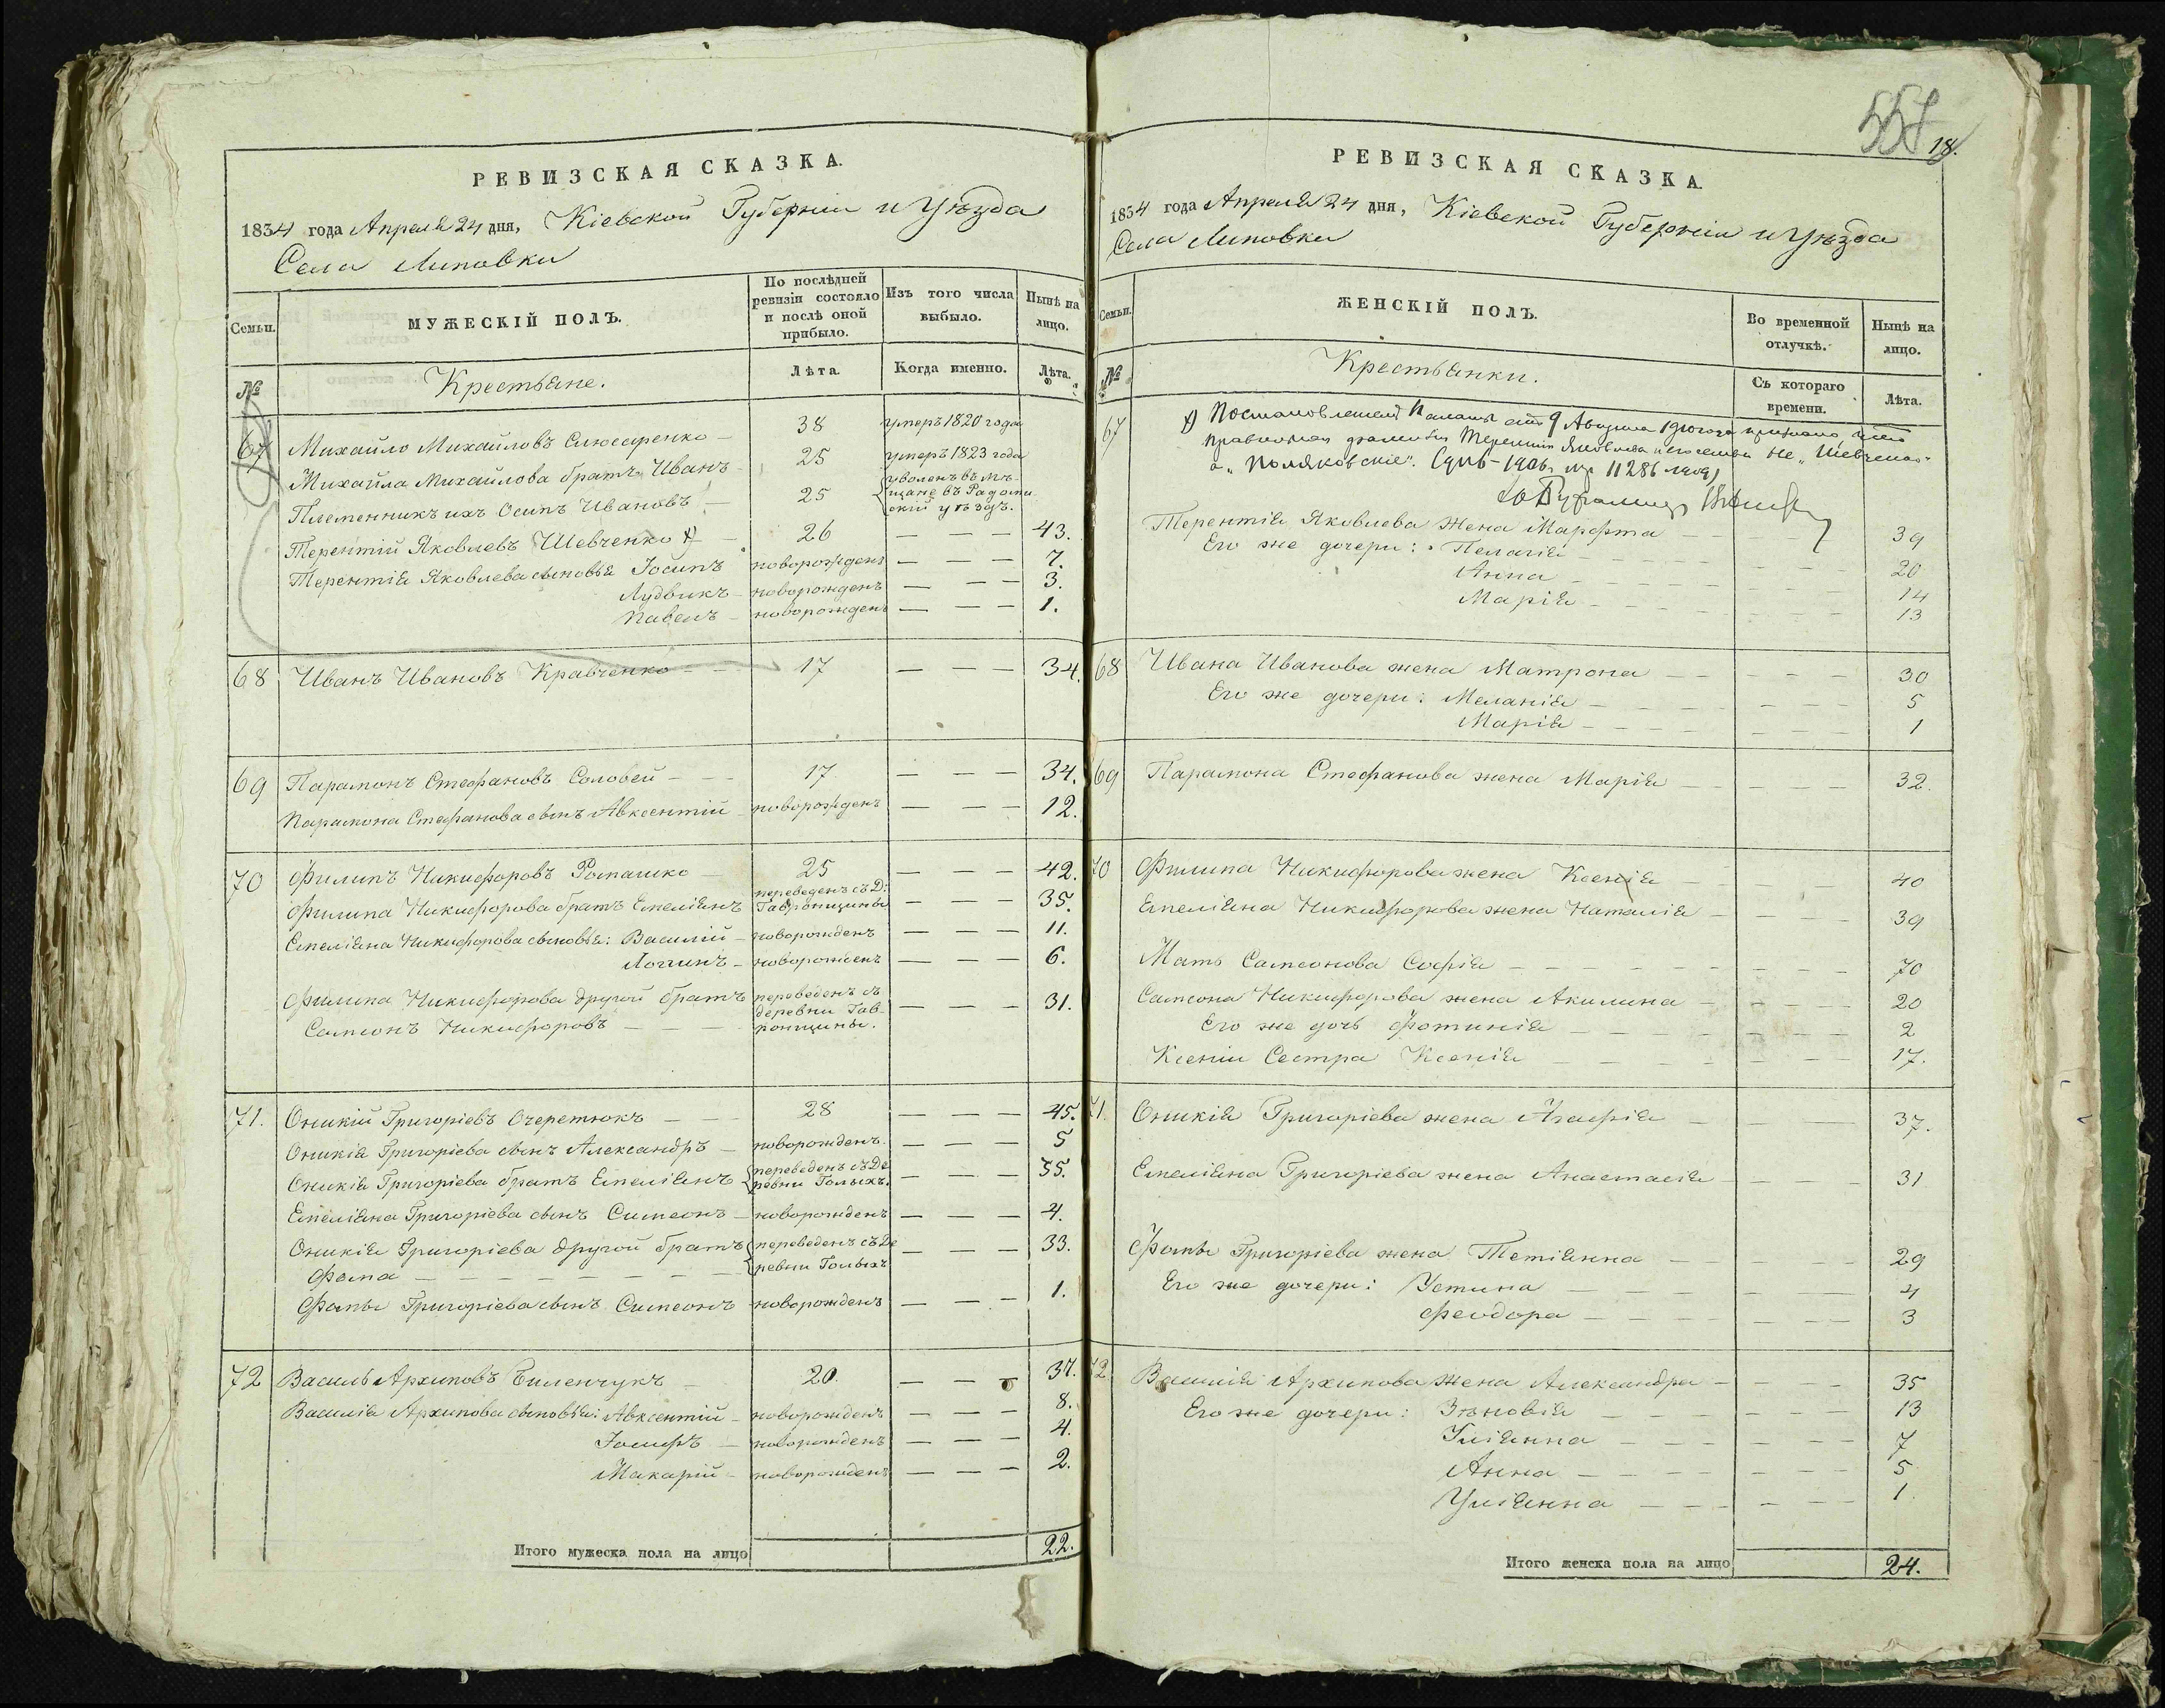 РЕВИЗСКАЯ СКАЗКА.
1834 года Апреля 24 дня, Кіевской Губерніи и Уѣзда
Села Липовки
Семьи.
МУЖЕСКІЙ ПОЛЪ.
По послѣдней
ревизіи состояло
и послѣ оной
прибыло.
Изъ того числа
выбыло.
Нынѣ на
лицо.
№
Крестьяне.
Лѣта.
Когда именно.
Лѣта.
67 Михайло Михайловъ Слюсаренко — 38 умеръ 1820 года
Михайла Михайлова братъ Иванъ — 25 умеръ 1823 года
Племенникъ ихъ Осипъ Ивановъ — 25 уволенъ въ мѣ-
щане въ Радомы
скій уѣздъ.
Терентій Яковлевъ Шевченко х) — 26 — — — 43.
Терентія Яковлева сыновья Іосипъ новорожденъ — — — 7.
Лудвикъ — новорожденъ — — — 3.
Павелъ — новорожденъ — — — 1.
68 Иванъ Ивановъ Кравченко — — 17 — — — 34.
69 Парамонъ Стефановъ Соловей — — — 17 — — — 34.
Парамона Стефанова сынъ Авксентій — новорожденъ — — — 12.
70 Филипъ Никифоровъ Ромашко — 25 — — — 42.
Филипа Никифорова братъ Емеліянъ переведенъ съ Д:
Гавронщины — — — 35.
Емеліяна Никифорова сыновья: Василій — новорожденъ — — — 11.
Логинъ — новорожденъ — — — 6.
Филипа Никифорова другой братъ переведенъ съ
Самсонъ Никифоровъ — — — деревни Гав-
ронщины. — — — 31.
71. Оникій Григоріевъ Очеретюкъ — — 28 — — — 45.
Оникія Григоріева сынъ Александръ — новорожденъ. — — — 5
Оникія Григоріева братъ Емеліянъ переведенъ съ Де
ревни Голыхъ. — — — 35.
Емеліяна Григоріева сынъ Симеонъ — новорожденъ — — — 4.
Оникія Григоріева другой братъ переведенъ съ Де
Фома — — — — — — — — ревни Голыхъ — — — 33.
Фомы Григоріева сынъ Симеонъ новорожденъ — — — 1.
72 Василь Архиповъ Биленчукъ — 20. — — — 37.
Василія Архипова сыновья: Авксентій — новорожденъ — — — 8.
Іосифъ — новорожденъ — — — 4.
Макарій — новорожденъ — — — 2.
Итого мужеска пола на лицо 22.
557
18.
РЕВИЗСКАЯ СКАЗКА.
1834 года Апреля 24 дня, Кіевской Губерніи и Уѣзда
Села Липовки
Семьи.
ЖЕНСКІЙ ПОЛЪ.
Во временной
отлучкѣ.
Нынѣ на
лицо.
№
Крестьянки.
Съ котораго
времени.
Лѣта.
67 х) Постановленіем Палаты отъ 9 Августа 1910 года признано, что
правильная фамилія Терентія Яковлева и его семьи не „Шевченко"
а „Поляковскіе".
Терентія Яковлева жена Марфта — — — 39
Его же дочери: Пелагія — — — 20
Анна — — — 14
Марія — — — 13
68 Ивана Иванова жена Матрона — — — 30
Его же дочери: Меланія — — — 5
Марія — — — 1
69 Парамона Стефанова жена Марія — — — 32.
70 Филипа Никифорова жена Ксенія — — — 40
Емеліяна Никифорова жена Наталія — — — 39
Мать Самсонова Софія — — — 70
Самсона Никифорова жена Акилина — — — 20
Его же дочь Фотинія — — — 2
Ксеніи Сестра Ксенія — — — 17.
71. Оникія Григоріева жена Агафія — — — 37.
Емеліяна Григоріева жена Анастасія — — — 31
Фомы Григоріева жена Тетіянна — — — 29
Его же дочери: Устина — — — 4
Феодора — — — 3
72 Василія Архипова жена Александра — — — 35
Его же дочери: Зѣновія — — — 13
Уліянна — — — 7
Анна — — — 5
Уліянна — — — 1
Итого женска пола на лицо 24.